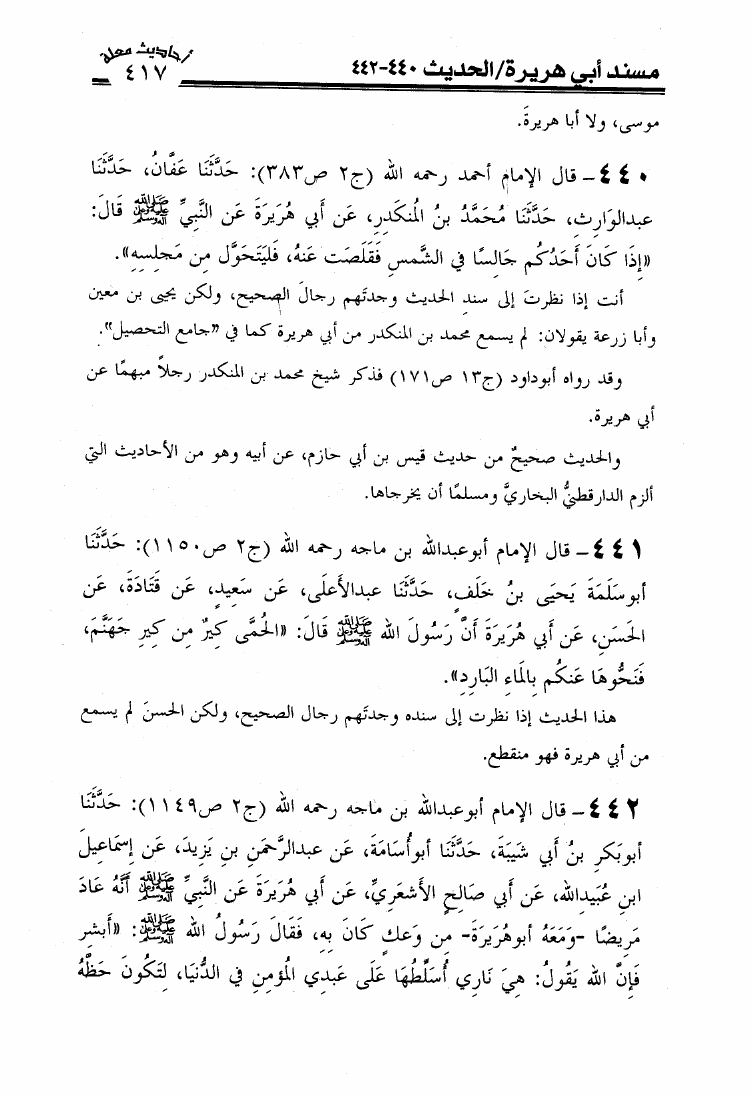 أحاديث معلة
مسند أبي هريرة/الحديث ٤٤٠-٤٤٢
٤١٧
موسى، ولا أبا هريرةَ.
٤٤٠- قال الإمام أحمد رحمه الله (ج٢ ص٣٨٣): حَدَّثَنَا عَفَّانُ، حَدَّثَنَا
عبدالوَارِثِ، حَدَّثَنَا مُحَمَّدُ بنُ المُنكَدرِ، عَن أَبي هُرَيرَةَ عَن النَّبيِّ ﷺ قَالَ:
«إِذَا كَانَ أَحَدُكُم جَالسًا في الشَّمسِ فَقَلَصَت عَنهُ، فَليَتَحَوَّل مِن مَجلسِهِ».
أنت إذا نظرتَ إلى سندِ الحديث وجدتَهم رجالَ الصحيح، ولكن يحيى بن معين
وأبا زرعة يقولان: لم يسمع محمد بن المنكدر من أبي هريرة كما في «جامع التحصيل».
وقد رواه أبوداود (ج١٣ ص١٧١) فذكر شيخ محمد بن المنكدر رجلاً مبهمًا عن
أبي هريرة.
والحديث صحيحٌ من حديث قيس بن أبي حازم، عن أبيه وهو من الأحاديث التي
ألزم الدارقطنيُّ البخاريَّ ومسلمًا أن يخرجاها.
٤٤١- قال الإمام أبوعبدالله بن ماجه رحمه الله (ج٢ ص١١٥٠): حَدَّثَنَا
أبوسَلَمَةَ يَحيَى بنُ خَلَفٍ، حَدَّثَنَا عبدالأَعلَى، عَن سَعِيدٍ، عَن قَتَادَةَ، عَن
الحَسَنِ، عَن أَبي هُرَيرَةَ أَنَّ رَسُولَ الله ﷺ قَالَ: «الحُمَّى كِيرٌ مِن كِيرِ جَهَنَّمَ،
فَنَحُّوهَا عَنكُم بِالمَاءِ البَارِدِ».
هذا الحديث إذا نظرت إلى سنده وجدتَهم رجال الصحيح، ولكن الحسنَ لم يسمع
من أبي هريرة فهو منقطع.
٤٤٢- قال الإمام أبوعبدالله بن ماجه رحمه الله (ج٢ ص١١٤٩): حَدَّثَنَا
أبوبَكرِ بنُ أَبي شَيبَةَ، حَدَّثَنَا أبوأُسَامَةَ، عَن عبدالرَّحمَنِ بنِ يَزِيدَ، عَن إِسمَاعِيلَ
ابنِ عُبَيدِالله، عَن أَبي صَالِحٍ الأَشعَرِيِّ، عَن أَبي هُرَيرَةَ عَن النَّبيِّ ﷺ أَنَّهُ عَادَ
مَرِيضًا -وَمَعَهُ أبوهُرَيرَةَ- مِن وَعكٍ كَانَ بِهِ، فَقَالَ رَسُولُ الله ﷺ: «أَبشِر
فَإِنَّ الله يَقُولُ: هِيَ نَارِي أُسَلِّطُهَا عَلَى عَبدِي المُؤمِنِ في الدُّنيَا، لِتَكُونَ حَظَّهُ